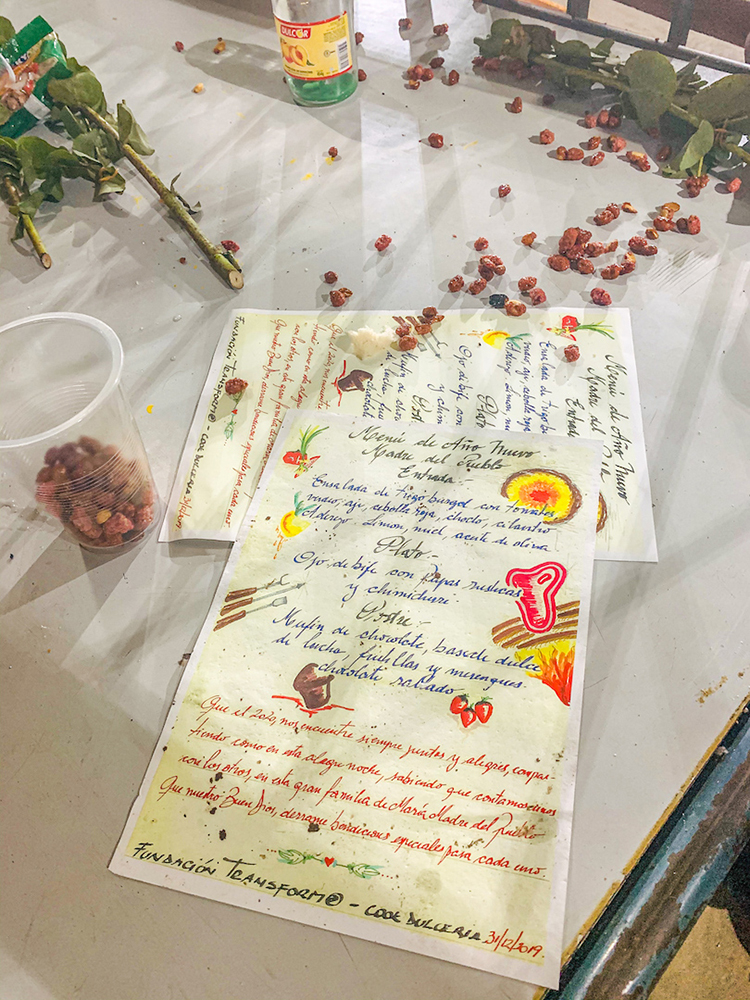 DULCOR
Menú de Año Nuevo
Madre del Pueblo
Entrada.-
Ensalada de trigo burgol con tomates
ají, cebolla roja, choclo, cilantro
Aderezo limon, miel, aceite de oliva
Plato.-
Ojo de bife con Papas rusticas
y chimichuri.
Postre.-
Mufin de chocolate, base de dulce
de luche, frutillas y merengues.
chocolate salado
Que el 2020, nos encuentre siempre juntos y alegres, compar-
tiendo como en esta alegre noche, sabiendo que contamos unos
con los otros, en esta gran familia de María Madre del pueblo
Que nuestro Buen Dios, derrame bendiciones especiales para cada uno.
FUNDACIÓN TRANSFORM@ - COOK DULCERIA 31/12/2019.
Menú de Año Nuevo
Madre del
Entrada
Ensalada de trigo bur
ají, cebolla roja
Aderezo limon, m
Plato
Ojo de bife con
y chimi
Post
Mufin de choc
de luche, fru
chocolate
Que el 2020, nos encuentre
tiendo como en esta alegre
con los otros, en esta gran familia de
Que nuestro Buen Dios, derrame bendiciones especiales para cada uno
FUNDACIÓN TRANSFORM@ - COOK DULCERIA 31/12/2019